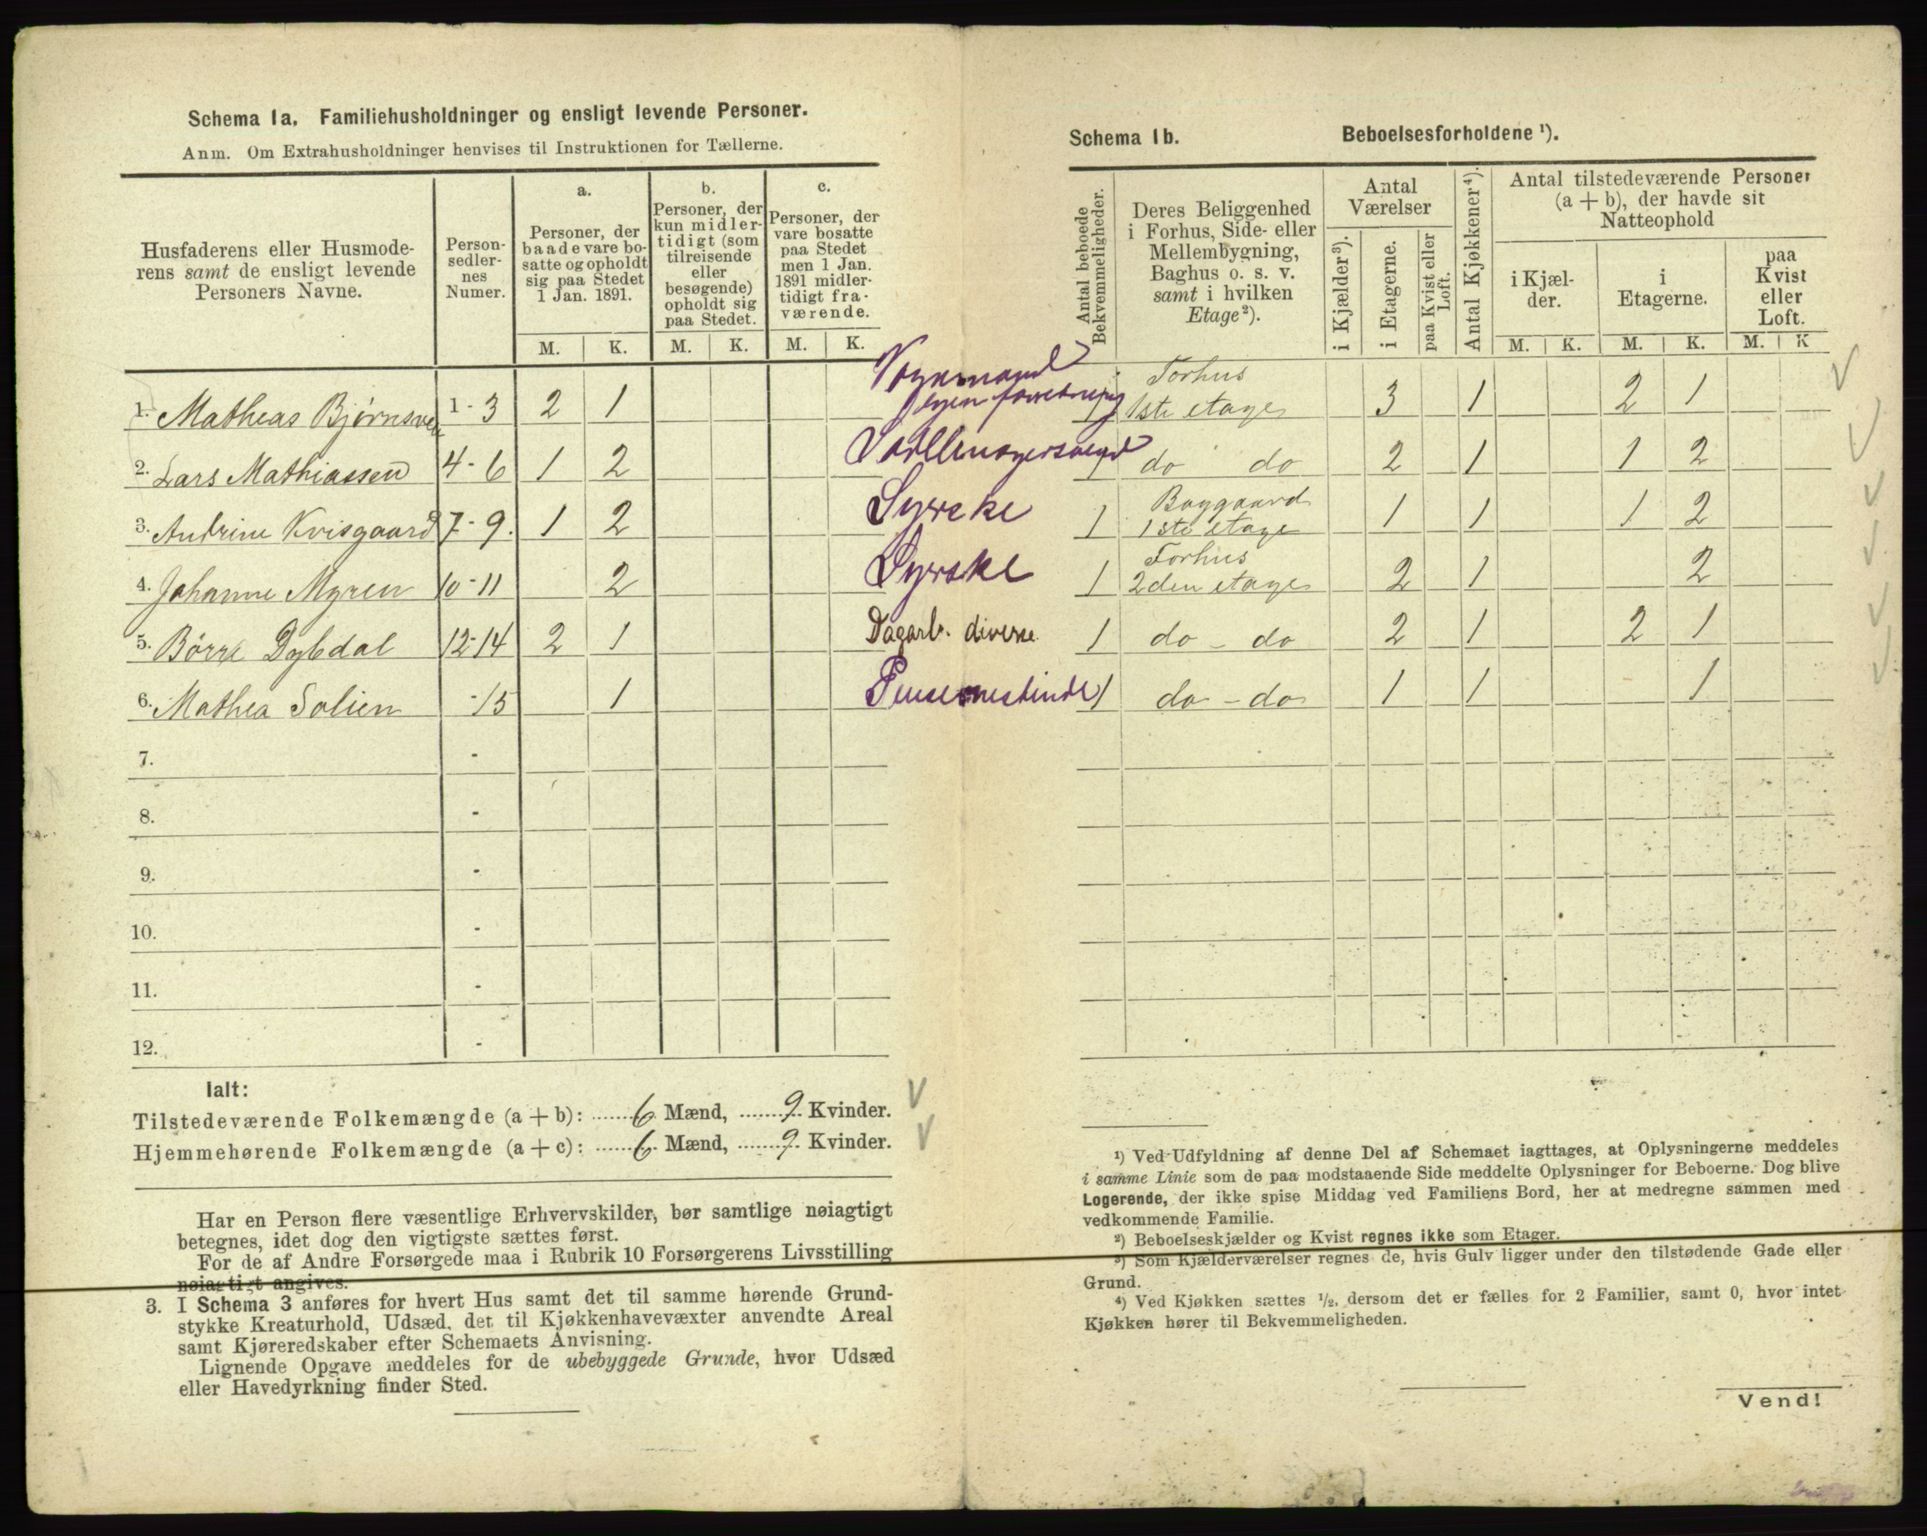 Schema 1a. Familiehusholdninger og ensligt levende Personer.
Anm. Om Extrahusholdninger henvises til Instruktionen for Tællerne.
Husfaderens eller Husmode-
rens samt de ensligt levende
Personers Navne.
Person-
sedler-
nes
Numer.
a.
Personer, der
baade vare bo-
satte og opholdt
sig paa Stedet
1 Jan. 1891.
b.
Personer, der
kun midler-
tidigt (som
tilreisende
eller
besøgende)
opholdt sig
paa Stedet.
c.
Personer, der
vare bosatte
paa Stedet
men 1 Jan.
1891 midler-
tidigt fra-
værende.
M. K. M. K. M. K.
1. Matheas Bjørnsve 1-3 2 1
2. Lars Mathiassen 4-6 1 2
3. Andrine Kvisgaard 7-9. 1 2
4. Johanne Myren 10-11 2
5. Børre Dybdal 12-14 2 1
6. Mathea Solien -15 1
7. -
8. -
9. -
10. -
11. -
12. -
Ialt:
Tilstedeværende Folkemængde (a + b): 6 Mænd, 9 Kvinder.
Hjemmehørende Folkemængde (a + c): 6 Mænd, 9 Kvinder.
Har en Person flere væsentlige Erhvervskilder, bør samtlige nøiagtigt
betegnes, idet dog den vigtigste sættes først.
For de af Andre Forsørgede maa i Rubrik 10 Forsørgerens Livsstilling
nøiagtigt angives.
3. I Schema 3 anføres for hvert Hus samt det til samme hørende Grund-
stykke Kreaturhold, Udsæd, det til Kjøkkenhavevæxter anvendte Areal
samt Kjøreredskaber efter Schemaets Anvisning.
Lignende Opgave meddeles for de ubebyggede Grunde, hvor Udsæd
eller Havedyrkning finder Sted.
Schema 1b. Beboelsesforholdene ¹).
Antal beboede
Bekvemmeligheder.
Deres Beliggenhed
i Forhus, Side- eller
Mellembygning,
Baghus o. s. v.
samt i hvilken
Etage²).
Antal
Værelser
i Kjælder³).
i Etagerne.
paa Kvist eller
Loft.
Antal Kjøkkener⁴).
Antal tilstedeværende Personer
(a + b), der havde sit
Natteophold
i Kjæl-
der.
i
Etagerne.
paa
Kvist
eller
Loft.
M. K. M. K. M. K
Vognmand
egen forretning 1 Forhus
1ste etage 3 1 2 1
1 do do 2 1 1 2
Syerske 1 Baggaard
1ste etage 1 1 1 2
Syerske 1 Forhus
2den etage 2 1 2
Dagarb. diverse 1 do - do 2 1 2 1
1 do - do 1 1 1
¹) Ved Udfyldning af denne Del af Schemaet iagttages, at Oplysningerne meddeles
i samme Linie som de paa modstaaende Side meddelte Oplysninger for Beboerne. Dog blive
Logerende, der ikke spise Middag ved Familiens Bord, her at medregne sammen med
vedkommende Familie.
²) Beboelseskjælder og Kvist regnes ikke som Etager.
³) Som Kjælderværelser regnes de, hvis Gulv ligger under den tilstødende Gade eller
Grund.
⁴) Ved Kjøkken sættes ½, dersom det er fælles for 2 Familier, samt 0, hvor intet
Kjøkken hører til Bekvemmeligheden.
Vend!